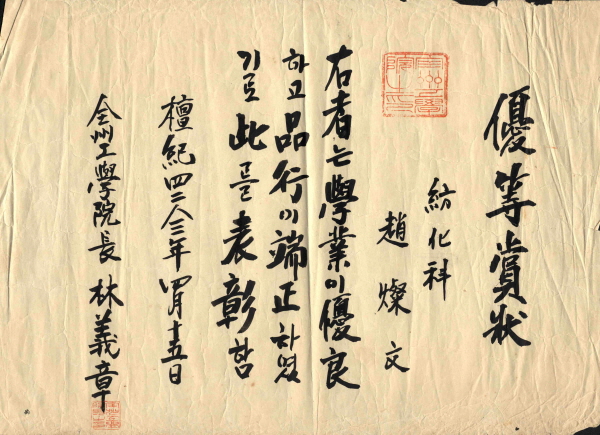 優等賞狀
紡化科
趙燦文
右者는學業이優良
하고品行이端正하였
기로此를表彰함
檀紀四二八三年四月十五日
全州工學院長 林義章